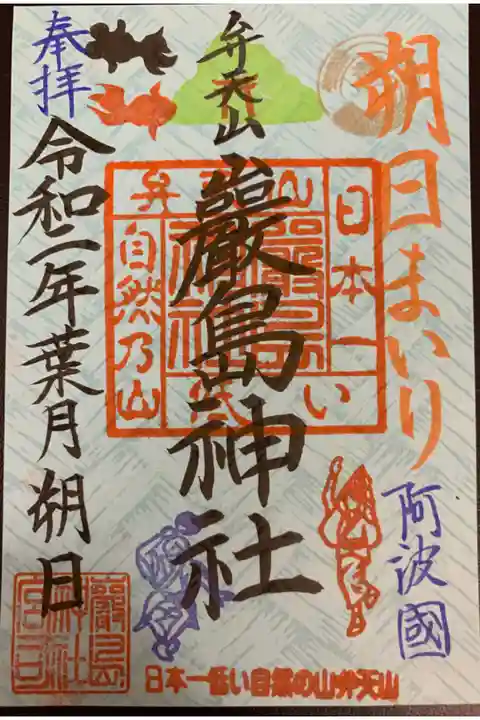 朔日まいり
阿波國
弁天山
嚴島神社
奉拝
令和二年葉月朔日
弁天山
日本一
低い
自然乃山
嚴島神社
日本一低い自然の山弁天山